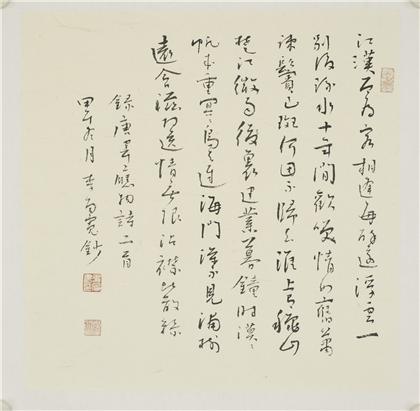 江漢曾為客相逢每醉還浮雲一
別後流水十年間歡笑情如舊蕭
疎鬢已斑何因不歸去淮上有秋山
楚江微雨後裏建業暮鐘時漠漠
帆來重冥冥鳥去遲海門深不見浦樹
遠含滋相送情無限沾襟比散絲
錄唐韋應物詩二首
甲午九月李鈔